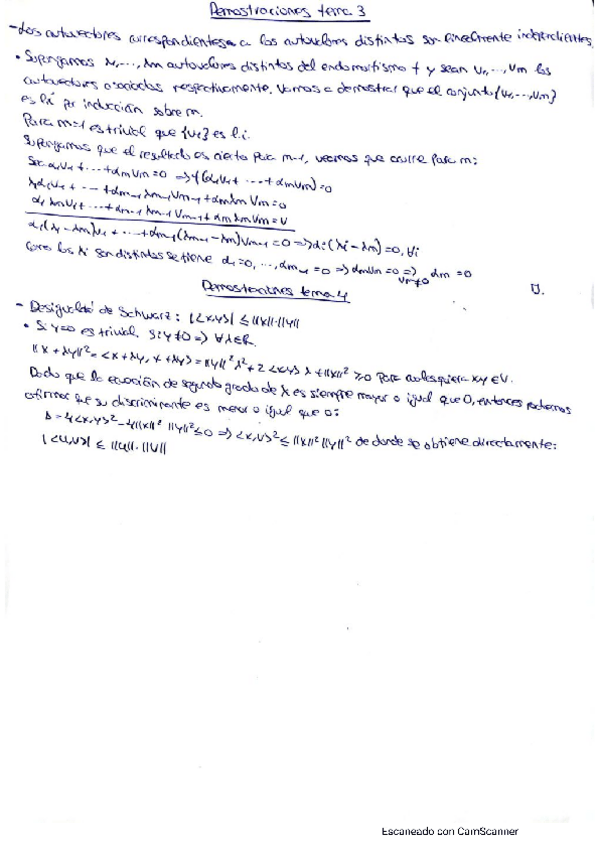 Demostraciones tema 3
- Los autovectores correspondientes a los autovalores distintos son linealmente independientes.
• Supongamos λ₁,..., λm autovalores distintos del endomorfismo f y sean v₁,..., vm los
autovectores asociados respectivamente. Vamos a demostrar que el conjunto {v₁,...,vm}
es li por inducción sobre m.
Para m=1 es trivial que {v₁} es l.i.
Supongamos que el resultado es cierto para m-1, veamos que ocurre para m:
Sea α₁v₁ + ... + αmvm = 0 => f(α₁v₁ + ... + αmvm) = 0
λ₁α₁v₁ + ... + αm-1 λm-1 vm-1 + αm λm vm = 0
α₁ λm v₁ + ... + αm-1 λm vm-1 + αm λm vm = 0
α₁(λ₁ - λm)v₁ + ... + αm-1(λm-1 - λm)vm-1 = 0 => αi(λi - λm) = 0, ∀i
Como los λi son distintos se tiene α₁=0, ..., αm-1 = 0 => αmvm = 0 => vm≠0 αm = 0
Demostraciones tema 4
- Desigualdad de Schwarz: |<x,y>| ≤ ||x||·||y||
• Si y=0 es trivial. Si y≠0 => ∀ λ∈R.
||x + λy||² = <x + λy, x + λy> = ||y||² λ² + 2 <x,y> λ + ||x||² ≥ 0 para cualesquiera x,y ∈ V.
Dado que la ecuación de segundo grado de λ es siempre mayor o igual que 0, entonces podemos
afirmar que su discriminante es menor o igual que 0:
Δ = 4<x,y>² - 4||x||² ||y||² ≤ 0 => <x,y>² ≤ ||x||² ||y||² de donde se obtiene directamente:
|<u,v>| ≤ ||u||·||v||
Escaneado con CamScanner